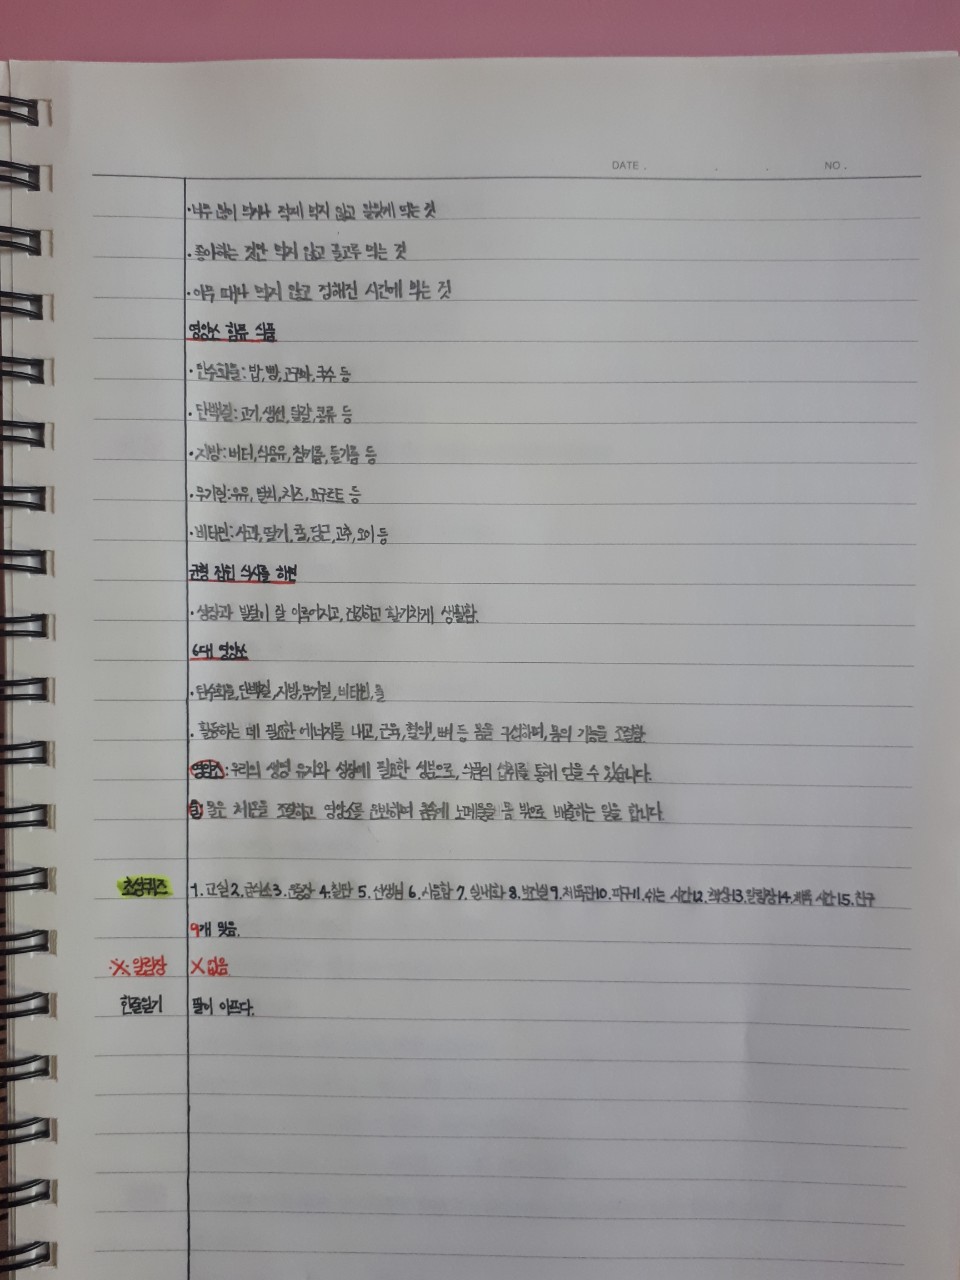 DATE . . . NO .
·너무 많이 먹거나 적게 먹지 않고 알맞게 먹는 것
·좋아하는 것만 먹지 않고 골고루 먹는 것
·아무 때나 먹지 않고 정해진 시간에 먹는 것
영양소 함유 식품
·탄수화물:밥,빵,고구마,국수 등
·단백질:고기,생선,달걀,콩류 등
·지방:버터,식용유,참기름,들기름 등
·무기질:우유,멸치,치즈,요구르트 등
·비타민:사과,딸기,귤,당근,고추,오이 등
균형 잡힌 식사를 하면
·성장과 발달이 잘 이루어지고,건강하고 활기차게 생활함.
6대 영양소
·탄수화물,단백질,지방,무기질,비타민,물
·활동하는 데 필요한 에너지를 내고,근육,혈액,뼈 등 몸을 구성하며,몸의 기능을 조절함.
영양소:우리의 생명 유지와 성장에 필요한 성분으로,식품의 섭취를 통해 얻을 수 있습니다.
물은 체온을 조절하고 영양소를 운반하며 몸속에 노폐물을 몸 밖으로 배출하는 일을 합니다.
초성퀴즈 1.교실 2.급식소 3.운동장 4.칠판 5.선생님 6.사물함 7.실내화 8.보건실 9.체육관 10.피구 11.쉬는 시간 12.책상 13.알림장 14.체육 시간 15.친구
9개 맞음.
※알림장 X없음
한줄일기 팔이 아프다.